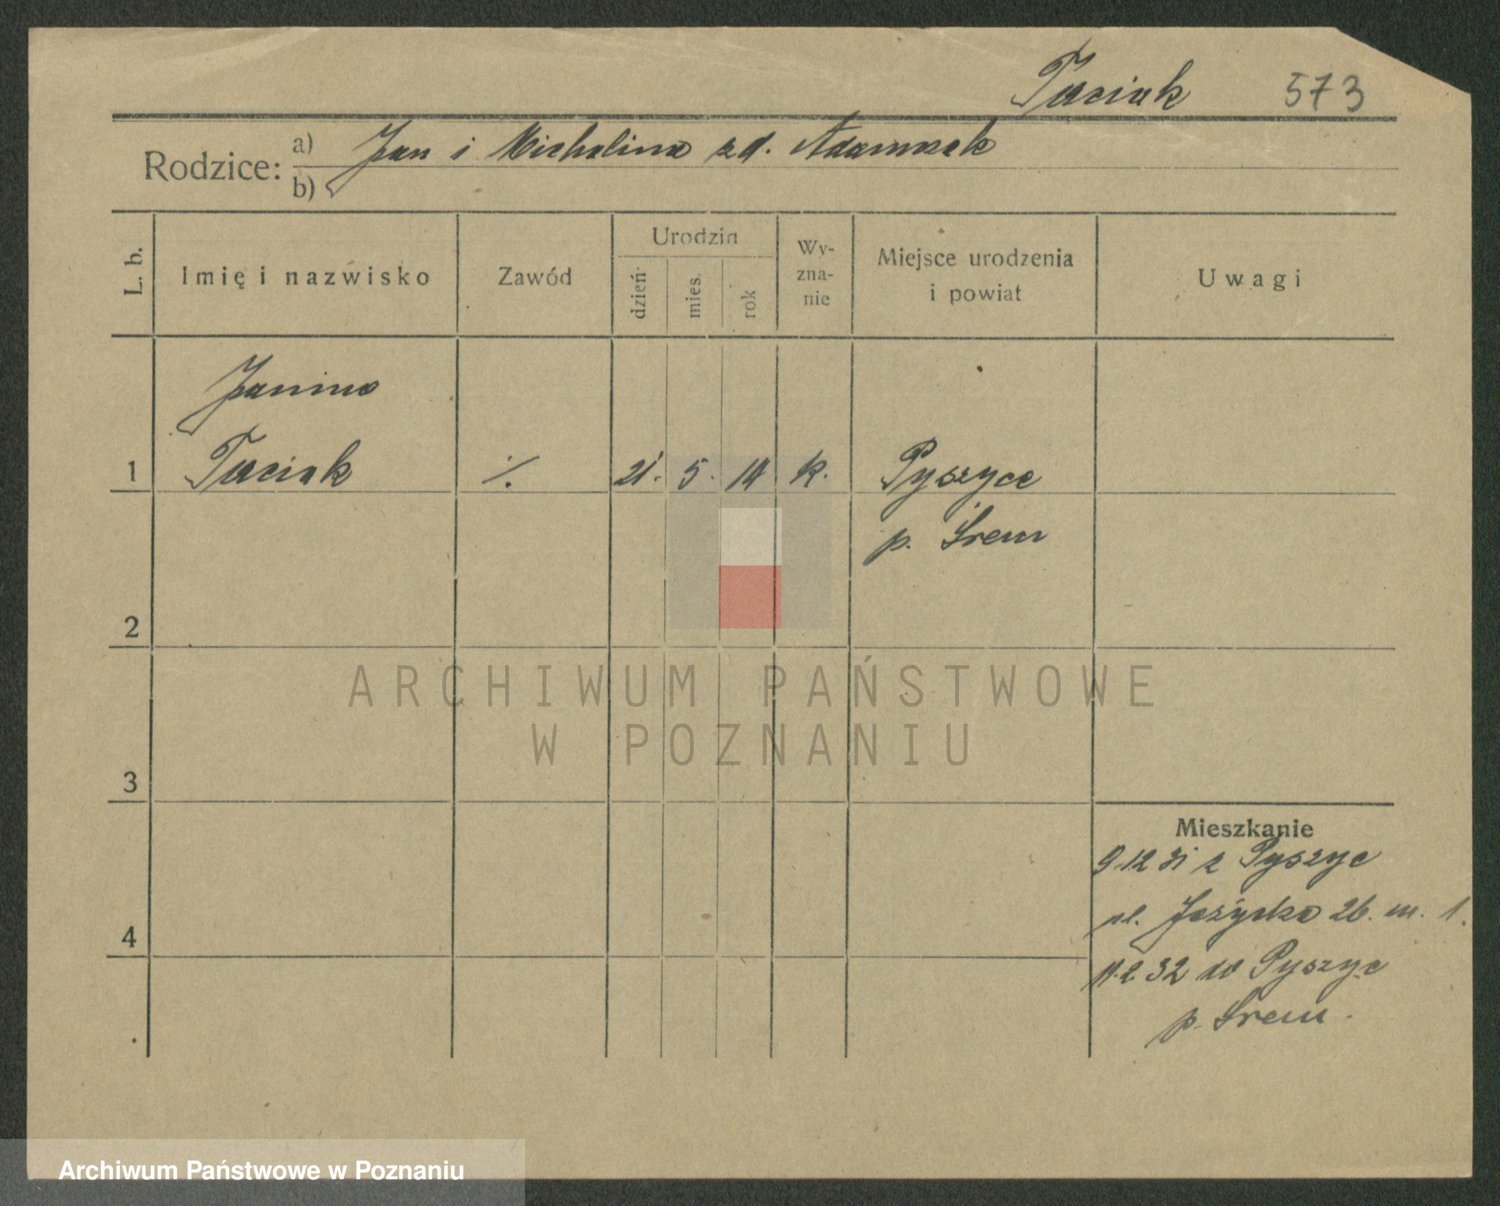 Taciak 573
Rodzice: a) Jan i Michalina zd. Adamczak
b)
L. b. Imię i nazwisko Zawód Urodzin dzień mies. rok Wy-
zna-
nie Miejsce urodzenia
i powiat Uwagi
Janina
1 Taciak ·/. 21. 5. 14 k. Pyszyce
p. Śrem
2
3
Mieszkanie
9.12 31 z Pyszyc
4 26. m. 1.
32 do Pyszyc
p. Śrem.
ARCHIWUM PAŃSTWOWE
W POZNANIU
Archiwum Państwowe w Poznaniu